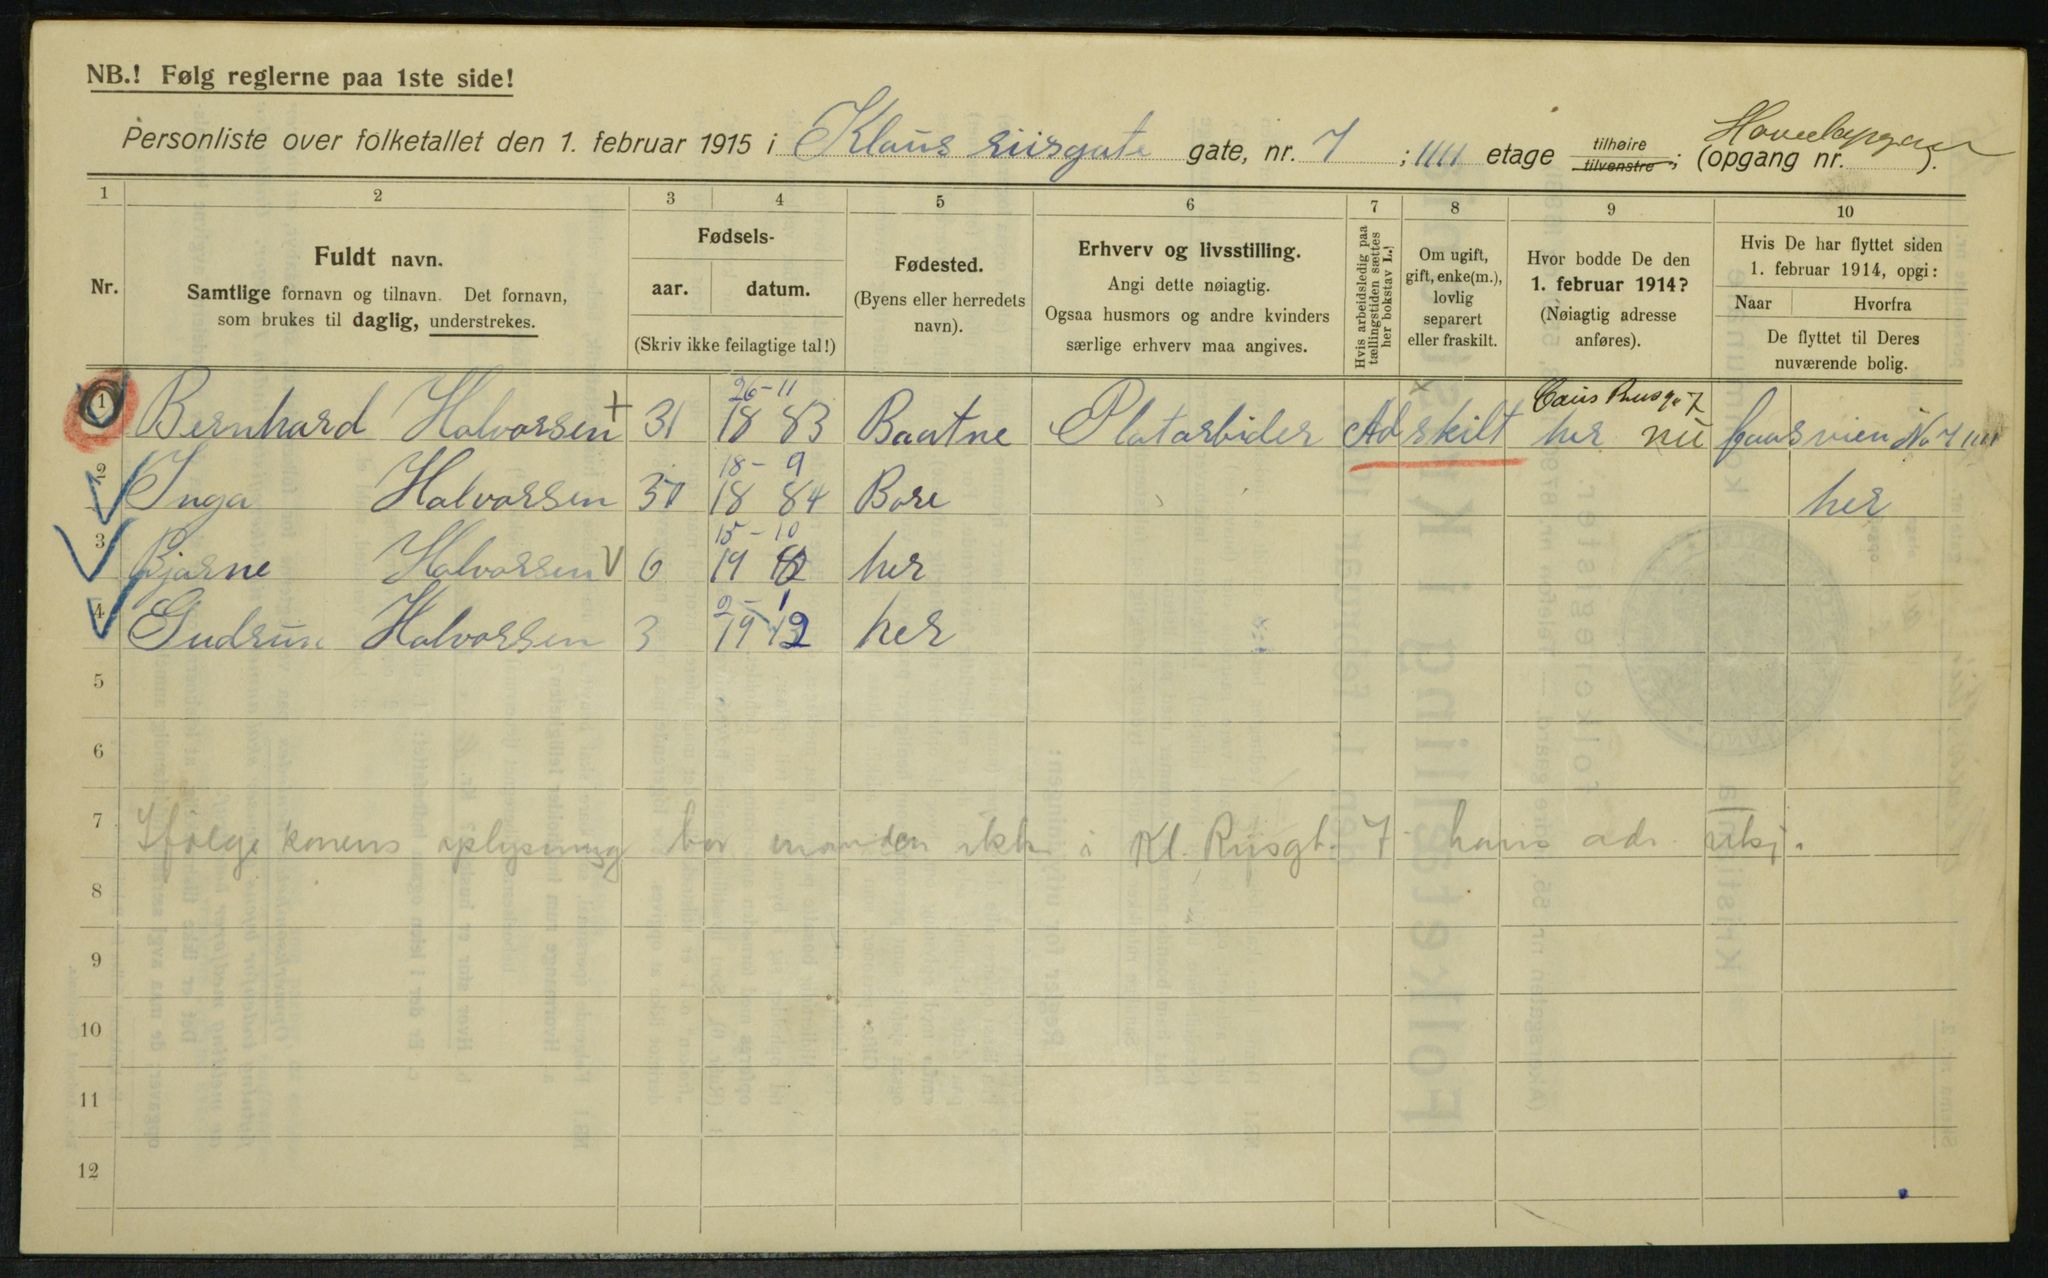 NB.! Følg reglerne paa 1ste side!
Personliste over folketallet den 1. februar 1915 i Klaus riisgate gate, nr. 7 ; IIII etage tilhøire tilvenstre ; (opgang nr. ).
1 2 3 4 5 6 7 8 9 10
Nr.
Fuldt navn.
Samtlige fornavn og tilnavn. Det fornavn,
som brukes til daglig, understrekes.
Fødsels-
aar. datum.
(Skriv ikke feilagtige tal!)
Fødested.
(Byens eller herredets
navn).
Erhverv og livsstilling.
Angi dette nøiagtig.
Ogsaa husmors og andre kvinders
særlige erhverv maa angives.
Hvis arbeidsledig paa
tællingstiden sættes
her bokstav L.!
Om ugift,
gift, enke(m.),
lovlig
separert
eller fraskilt.
Hvor bodde De den
1. februar 1914?
(Nøiagtig adresse
anføres).
Hvis De har flyttet siden
1. februar 1914, opgi:
Naar Hvorfra
De flyttet til Deres
nuværende bolig.
26-11
1 Bernhard Halvorsen + 31 18 83 Baatne Platarbider Adskilt her nu No 7 IIII
18-9
2 Inga Halvorsen 30 18 84 Bore her
15-10
3 Bjarne Halvorsen V 6 19 her
2-1
4 Gudrun Halvorsen 3 19 12 her
5
6
7 Ifølge konens oplysning bor manden ikke i Kl. Riisgt. 7 hans adr. ukj.
8
9
10
11
12